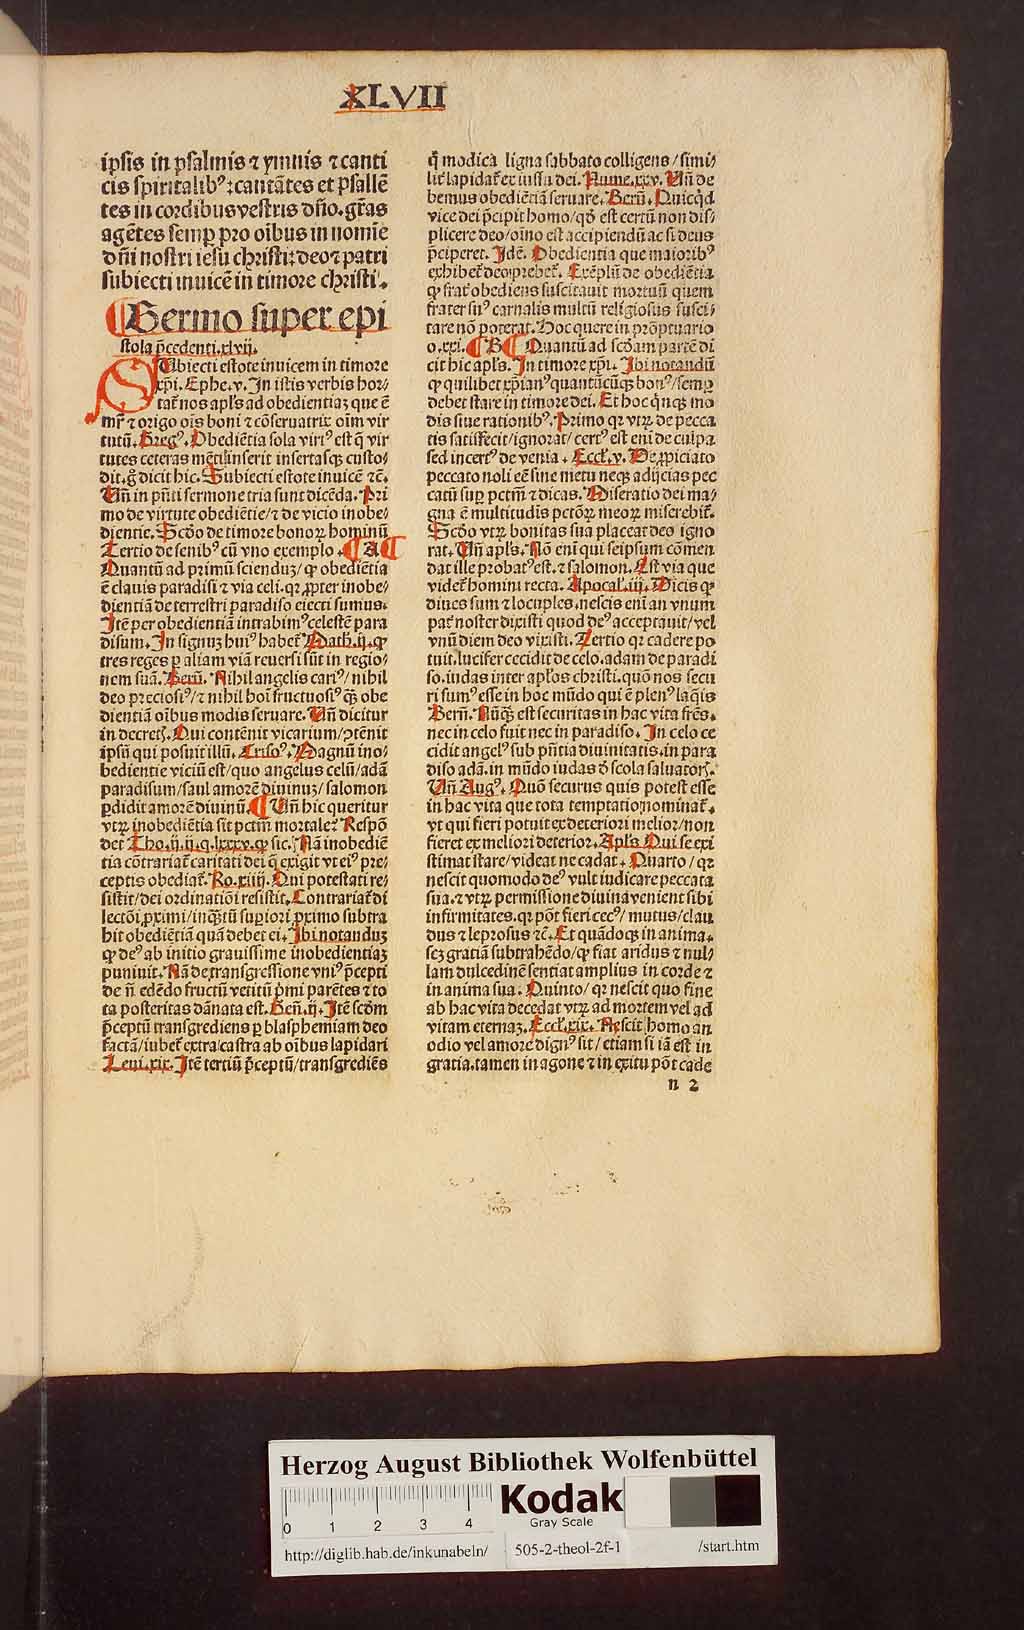 XLVII
ipsis in psalmis ⁊ ymnis ⁊ canti
cis spiritalibꝰ: cantātes et psallē
tes in cordibus vestris dn̄o. gr̄as
agētes semꝑ pro oībus in nomīe
dn̄i nostri iesu christi: deo ⁊ patri
subiecti inuicē in timore christi.
Sermo super epi
stola p̄cedenti. xlvij.
SUbiecti estote inuicem in timore
xp̄i. Ephe. v. In istis verbis hor/
tat̄ nos apl̄s ad obedientiaꝫ que ē
mr̄ ⁊ origo oīs boni ⁊ cōseruatrix oīm vir
tutū. Gregꝰ. Obediētia sola virtꝰ est q̄ vir
tutes ceteras mēti inserit insertasqꝫ custo/
dit. g̊ dicit hic. Subiecti estote inuicē ⁊c̄.
Vn̄ in pn̄ti sermone tria sunt dicēda. Pri
mo de virtute obediētie / ⁊ de vicio inobe/
dientie. Scd̄o de timore bonoꝝ hominū
Tertio de senibꝰ cū vno exemplo. A
Quantū ad primū scienduꝫ / ꝙ obediētia
ē clauis paradisi ⁊ via celi. qꝛ ꝓpter inobe/
dientiā de terrestri paradiso eiecti sumus.
Itē per obedientiā intrabimꝰ celestē para
disum. In signuꝫ huiꝰ habet̄ Math. ij. ꝙ
tres reges ꝑ aliam viā reuersi sūt in regio/
nem suā. Bern̄. Nihil angelis cariꝰ / nihil
deo preciosiꝰ / ⁊ nihil hoī fructuosiꝰ qꝫ obe
dientiā oībus modis seruare. Vn̄ dicitur
in decretꝭ. Qui contēnit vicarium / ꝯtēnit
ipsū qui posuit illū. Crisoꝰ. Magnū ino/
bedientie viciū est / quo angelus celū / adā
paradisum / saul amorē diuinuꝫ / salomon
ꝑdidit amorē diuinū. Vn̄ hic queritur
vtꝝ inobediētia sit pctm̄ mortale? Respō
det Tho. ij. ij. q. lxxxv. ꝙ sic. Nā inobediē
tia cōtrariat̄ caritati dei q̄ exigit vt eiꝰ pre/
ceptis obediat̄. Ro. xiij. Qui potestati re/
sistit / dei ordinatiōi resistit. Contrariat̄ di
lectōi ꝓximi / inqꝫtū superiori ꝓximo subtra
hit obediētiā quā debet ei. Ibi notanduꝫ
ꝙ deꝰ ab initio grauissime inobedientiaꝫ
puniuit. Nā de transgressione vniꝰ p̄cepti
de nō edēdo fructū vetitū p̄mi parētes ⁊ to
ta posteritas dānata est. Gen̄. ij. Itē scd̄m
p̄ceptū transgrediens ꝑ blasphemiam deo
factā / iubet̄ extra castra ab oībus lapidari
Leui. xix. Itē tertiū p̄ceptū / transgrediēs
q̄ modica ligna sabbato colligens / simi/
lit̄ lapidat̄ ex iussu dei. Nume. xxv. Vn̄ de
bemus obediētiā seruare. Bern̄. Quicq̇d
vice dei p̄cipit homo / qd̄ est certū non dis/
plicere deo / oīno est accipiendū ac si deus
p̄ciperet. Idē. Obedientia que maioribꝰ
exhibet̄ deo prebet̄. Exēplū de obediētia
ꝙ frat̄ obediens suscitauit mortuū quem
frater suꝰ carnalis multū religiosus susci/
tare nō poterat. Hoc quere in prōptuario
o. xxi. B Quantū ad scd̄am partē di
cit hic apl̄s. In timore xp̄i. Ibi notandū
ꝙ quilibet xp̄ianꝰ quantūcūqꝫ bonꝰ / semꝑ
debet stare in timore dei. Et hoc q̇nqꝫ mo
dis siue rationibꝰ. Primo qꝛ vtꝝ de pecca
tis satisfecit / ignorat / certꝰ est eni de culpa
sed incertꝰ de venia. Eccl̄. v. De ꝓpiciato
peccato noli eē sine metu neqꝫ adijcias pec
catū suꝑ pctm̄ ⁊ dicas. Miseratio dei ma/
gna ē multitudis pctōꝝ meoꝝ miserebit̄.
Scd̄o vtꝝ bonitas sua placeat deo igno
rat. Vn̄ apl̄s. Nō eni qui seipsum cōmen
dat ille probatꝰ est. ⁊ salomon. Est via que
videt̄ homini recta. Apocal̄. iij. Dicis ꝙ
diues sum ⁊ locuples. nescis eni an vnum
pat̄ noster dixisti quod deꝰ acceptauit / vel
vnū diem deo vixisti. Tertio qꝛ cadere po
tuit. lucifer cecidit de celo. adam de paradi
so. iudas inter apl̄os christi. quō nos secu
ri sumꝰ esse in hoc mūdo qui ē plenꝰ laq̄is
Bern̄. Nūqꝫ est securitas in hac vita fr̄es.
nec in celo fuit nec in paradiso. In celo ce
cidit angelꝰ sub pn̄tia diuinitatis. in para
diso adā. in mūdo iudas d̄ scola saluatorꝭ.
Vn̄ Augꝰ. Quō securus quis potest esse
in hac vita que tota temptatio nominat̄.
vt qui fieri potuit ex deteriori melior / non
fieret ex meliori deterior. Apl̄s Qui se exi
stimat stare / videat ne cadat. Quarto / qꝛ
nescit quomodo deꝰ vult iudicare peccata
sua. ⁊ vtꝝ permissione diuina venient sibi
infirmitates. qꝛ pōt fieri cecꝰ / mutus / clau
dus ⁊ leprosus ⁊c̄. Et quādoqꝫ in anima.
scꝫ gratiā subtrahēdo / ꝙ fiat aridus ⁊ nul/
lam dulcedinē sentiat amplius in corde ⁊
in anima sua. Quinto / qꝛ nescit quo fine
ab hac vita decedat vtꝝ ad mortem vel ad
vitam eternaꝫ. Eccl̄. xix. Nescit homo an
odio vel amore dignꝰ sit / etiam si iā est in
gratia. tamen in agone ⁊ in exitu pōt cade
n 2
Herzog August Bibliothek Wolfenbüttel
0 1 2 3 4
Kodak
Gray Scale
http://diglib.hab.de/inkunabeln/ 505-2-theol-2f-1 /start.htm